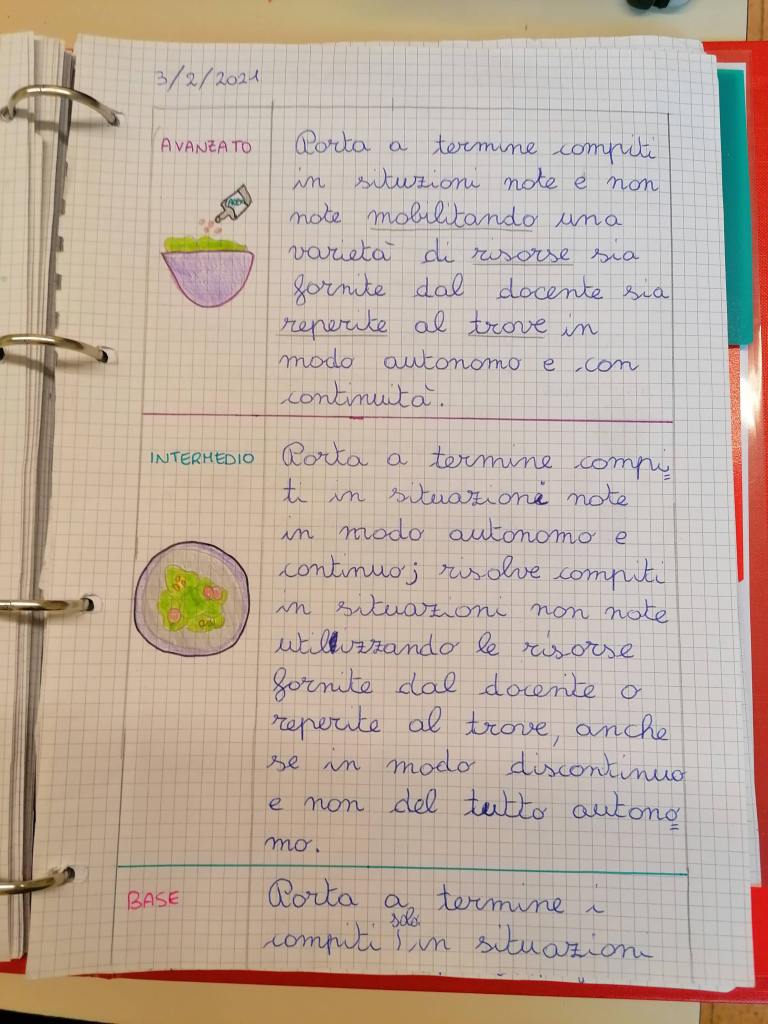 3/2/2021
AVANZATO
Porta a termine compiti
in situzioni note e non
note mobilitando una
varietà di risorse sia
fornite dal docente sia
reperite al trove in
modo autonomo e con
continuità.
INTERMEDIO
Porta a termine compi=
ti in situazioni note
in modo autonomo e
continuo; risolve compiti
in situazioni non note
utilizzando le risorse
fornite dal docente o
reperite al trove, anche
se in modo discontinuo
e non del tutto autono=
mo.
BASE
Porta a termine i
compiti solo in situazioni